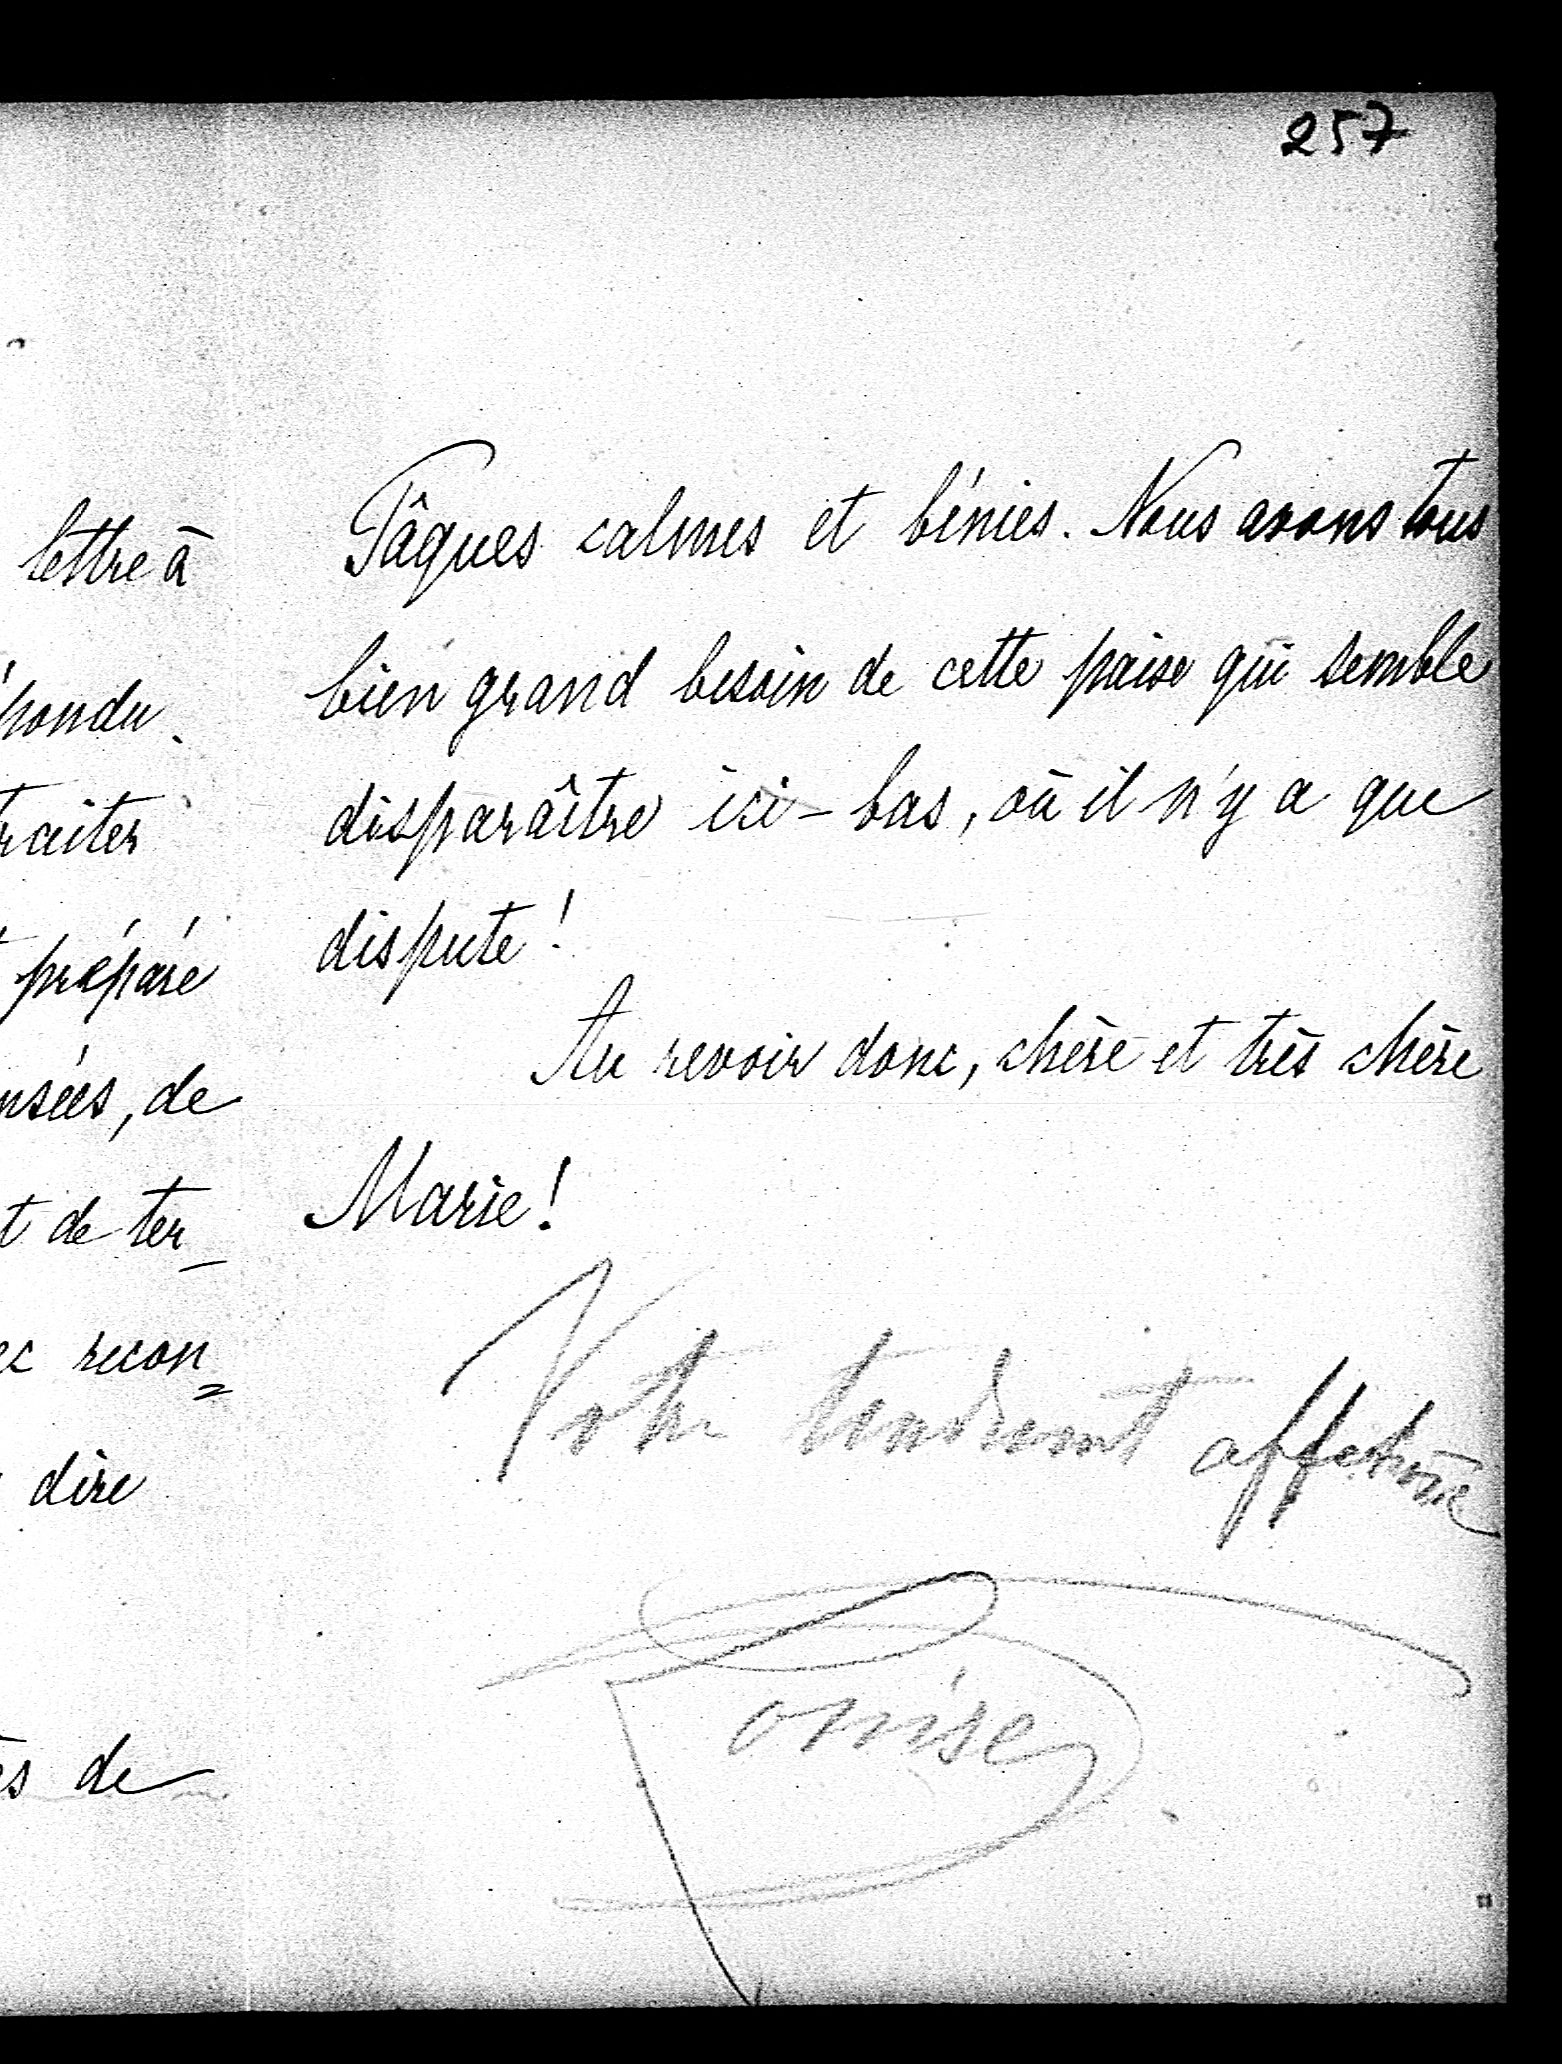 257
lettre à
pondu.
traiter
préparé
nsées, de
t de ter_
ec recon=
dire
es de
Pâques calmes et bénies. Nous avons tous
bien grand besoin de cette paix qui semble
disparaître ici-bas, où il n'y a que
dispute!
Au revoir donc, chère et très chère
Marie!
Votre tendrement affectionée